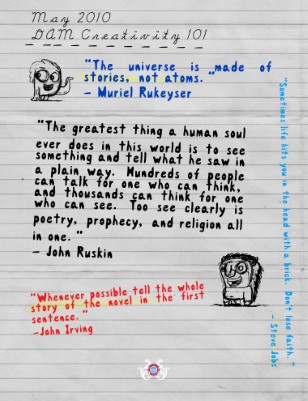 May 2010
DAM Creativity 101
"The universe is made of
stories, not atoms."
– Muriel Rukeyser
"The greatest thing a human soul
ever does in this world is to see
something and tell what he saw in
a plain way. Hundreds of people
can talk for one who can think,
and thousands can think for one
who can see. Too see clearly is
poetry, prophecy, and religion all
in one."
– John Ruskin
"Sometimes life hits you in the head with a brick. Don't lose faith."
– Steve Jobs
"Whenever possible tell the whole
story of the novel in the first
sentence."
–John Irving